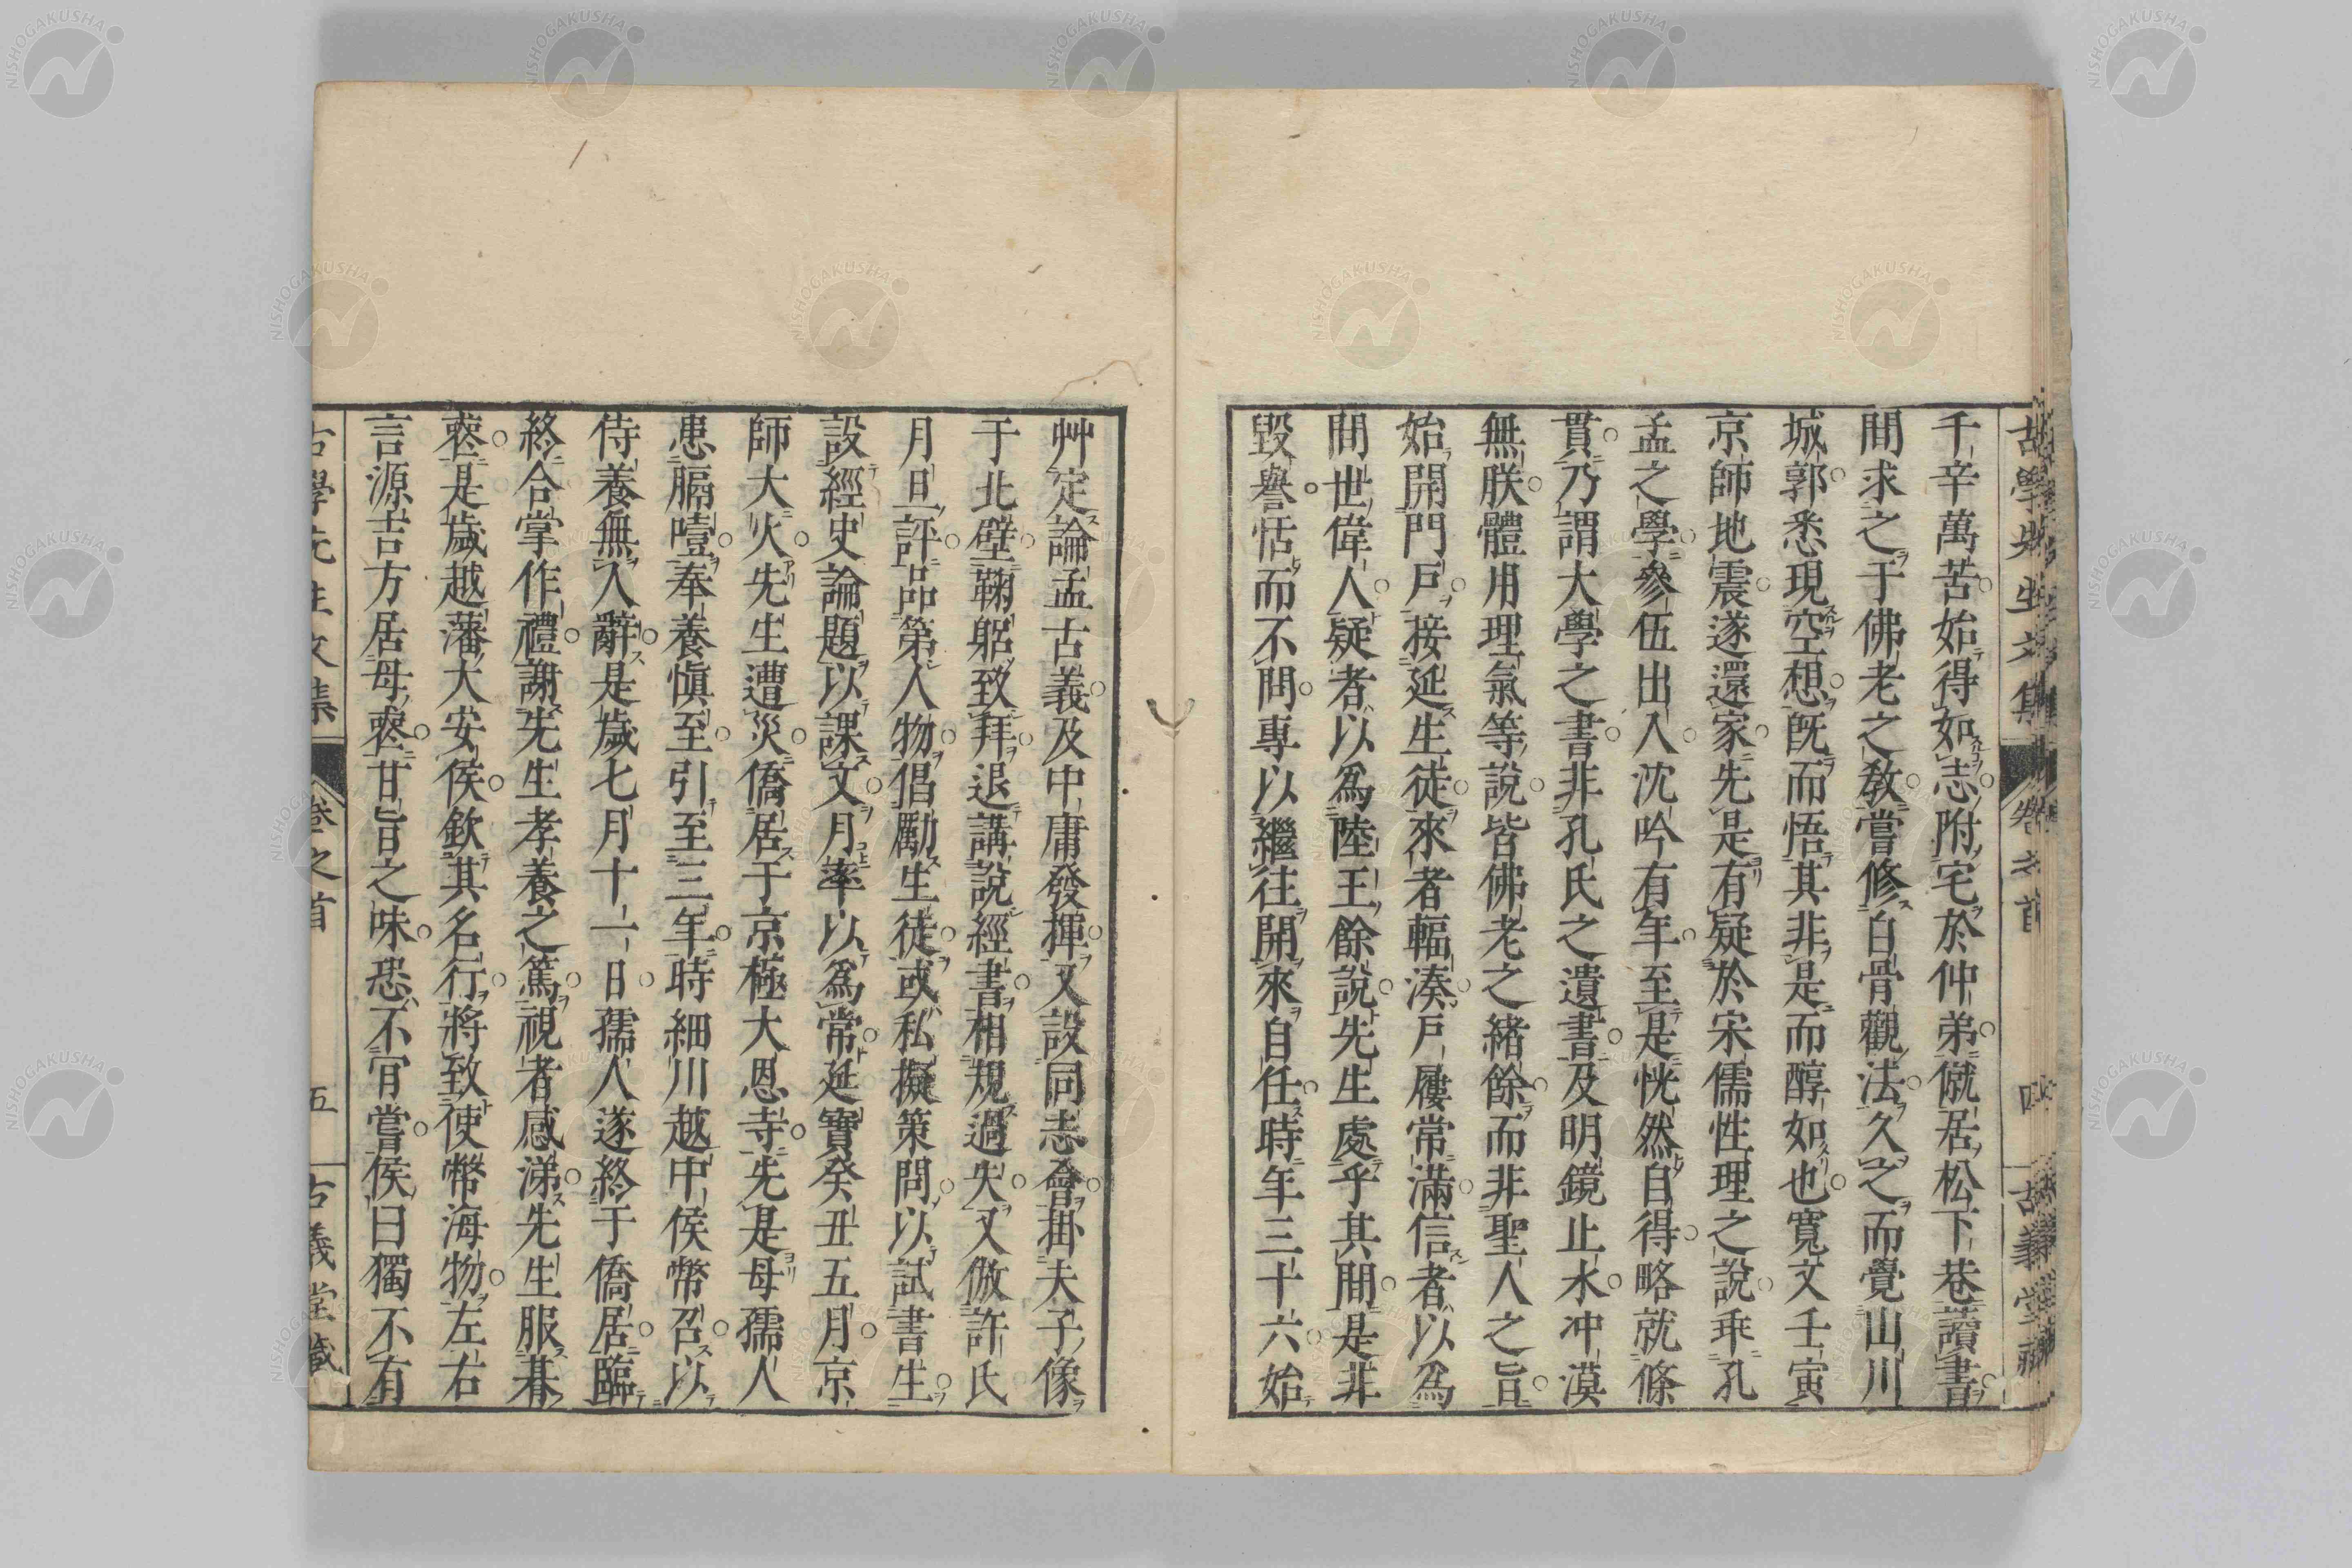 古學先生文集 卷之首 四 古義堂藏
千辛萬苦始得如志附宅於仲弟僦居松下巷讀書
間求之于佛老之教嘗修白骨觀法久之而覺山川
城郭悉現空想既而悟其非是而醇如也寬文壬寅
京師地震遂還家先是有疑於宋儒性理之說乖孔
孟之學參伍出入沈吟有年至是恍然自得略就條
貫乃謂大學之書非孔氏之遺書及明鏡止水冲漠
無朕體用理氣等說皆佛老之緒餘而非聖人之旨
始開門戶接延生徒來者輻湊戶屨常滿信者以爲
間世偉人疑者以爲陸王餘說先生處乎其間是非
毀譽恬而不問專以繼往開來自任時年三十六始
艸定論孟古義及中庸發揮又設同志會掛夫子像
于北壁鞠躬致拜退講說經書相規過失又倣許氏
月旦評品第人物倡勵生徒或私擬策問以試書生
設經史論題以課文月率以爲常延寶癸丑五月京
師大火先生遭災僑居于京極大恩寺先是母孺人
患膈噎奉養愼至引至三年時細川越中侯幣召以
侍養無人辭是歲七月十一日孺人遂終于僑居臨
終合掌作禮謝先生孝養之篤視者感涕先生服朞
喪是歲越藩大安侯欽其名行將致使幣海物左右
言源吉方居母喪甘旨之味恐不肎嘗侯曰獨不有
古學先生文集 卷之首 五 古義堂藏